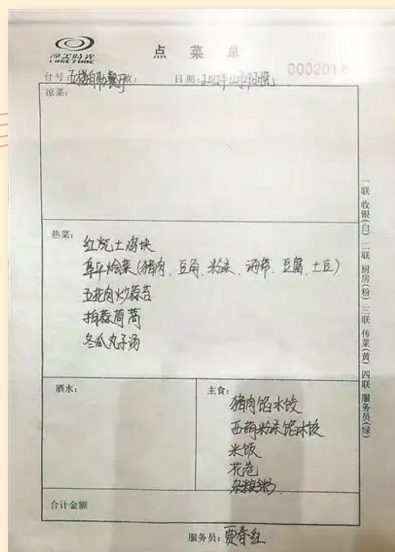 点菜单
000201
台号:五楼自助餐厅
日期:2021年12月29日晚
凉菜:
热菜:
红烧土鸡块
阜平烩菜(猪肉、豆角、粉条、海带、豆腐、土豆)
五花肉炒蒜苔
拍蒜茼蒿
冬瓜丸子汤
酒水:
主食:
猪肉馅水饺
西葫粉条馅水饺
米饭
花卷
杂粮粥
合计金额
服务员:贾春红
一联 收银(白) 二联 厨房(粉) 三联 传菜(黄) 四联 服务员(绿)